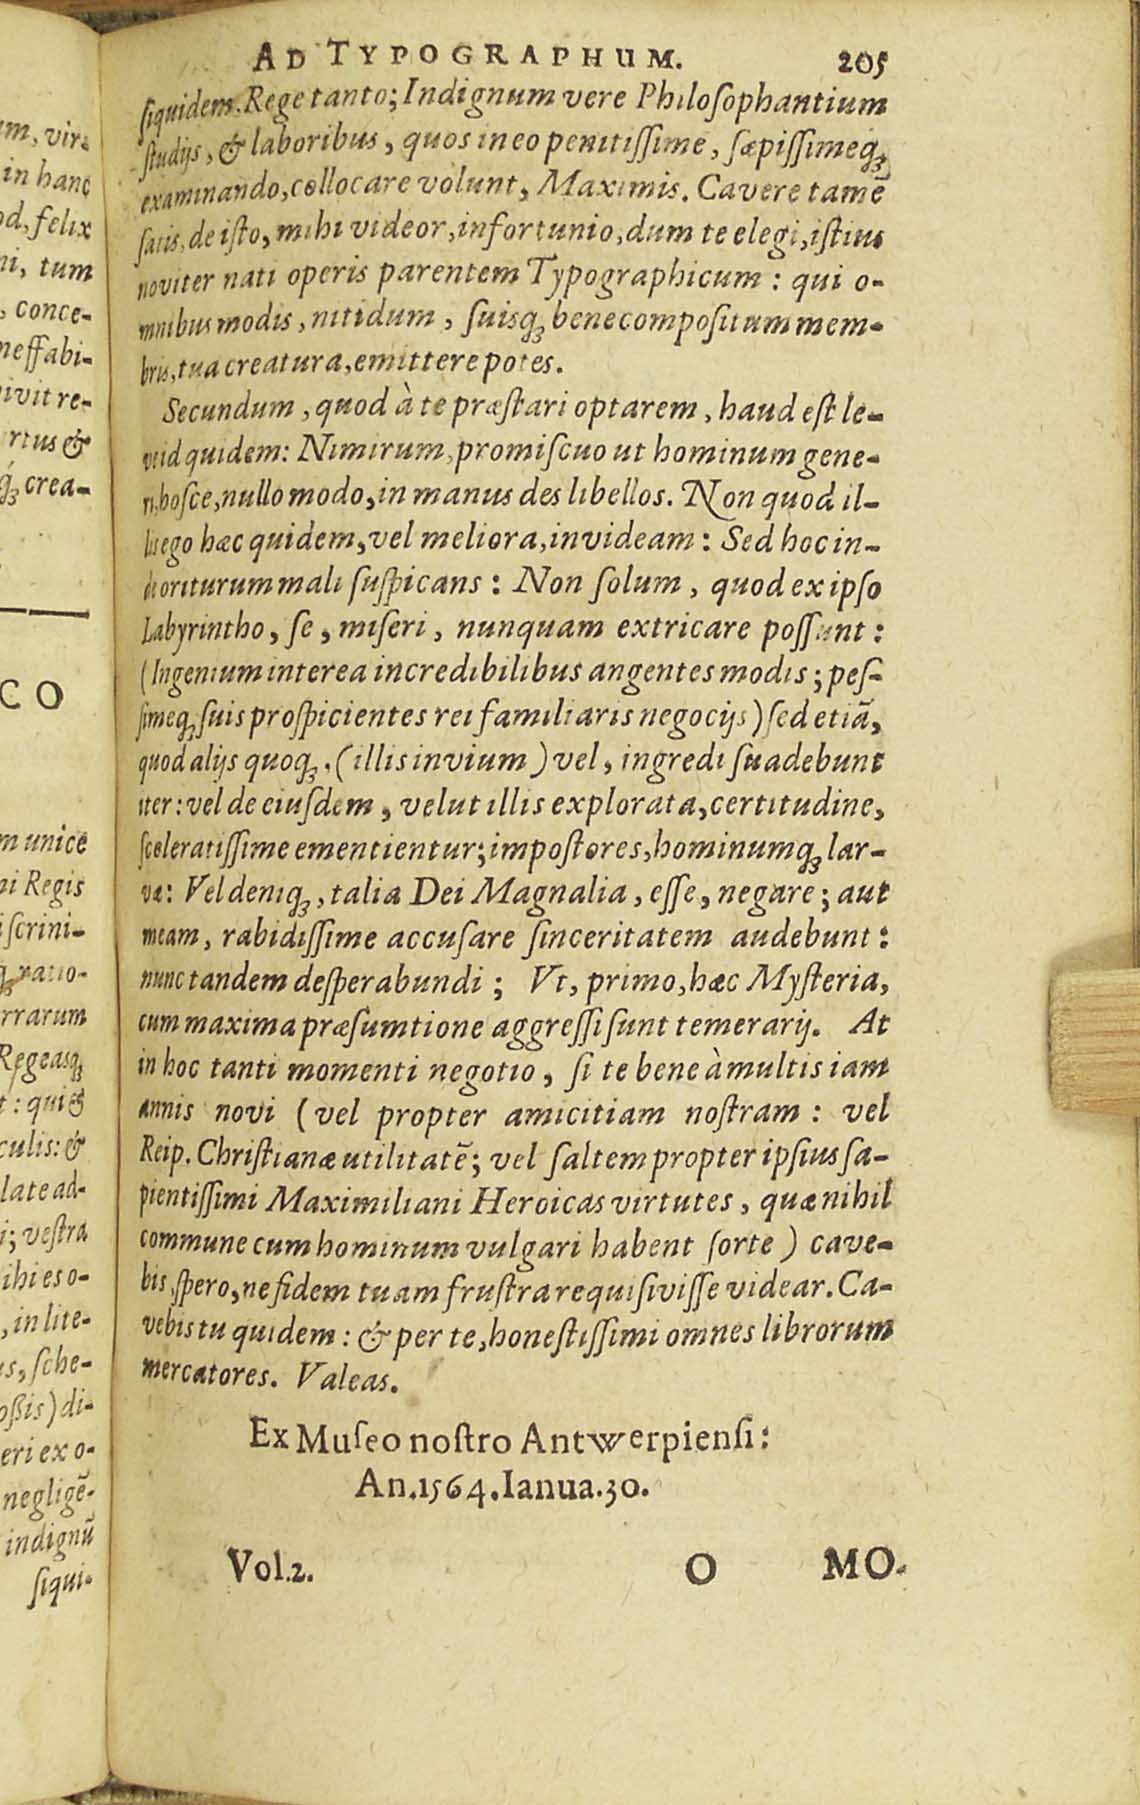 um, vir-
in hanc
od, felix
ni, tum
, conce-
neffabi-
vivit re-
rtus &
q́ꝫ crea-
CO
m unicè
ni Regis
iſcrini-
qꝫ ratio-
rrarum
Regeasqꝫ
t: qui &
culis: &
late ad-
i; veſtra
ihi es o-
, in lite-
us, ſche-
oßis) di-
eri ex o-
negligē-
indignū
ſiqui-
AD TYPOGRAPHUM. 205
ſiquidem. Rege tanto; Indignum vere Philoſophantium
ſtudijs, & laboribus, quos in eo penitiſſimè, ſæpiſſimeqꝫ
examinando, collocare volunt, Maximis. Cavere tamē
ſatis, de iſto, mihi videor, infortunio, dum te elegi, iſtius
noviter nati operis parentem Typographicum: qui o-
mnibus modis, nitidum, ſuisqꝫ bene compoſitum mem-
bris, tua creatura, emittere potes.
Secundum, quod à te præſtari optarem, haud eſt le-
ve id quidem: Nimirum, promiſcuo ut hominum gene-
ri, hoſce, nullo modo, in manus des libellos. Non quod il-
lis ego hæc quidem, vel meliora, invideam: Sed hoc in-
de oriturum mali ſuſpicans: Non ſolum, quod ex ipſo
Labyrintho, ſe, miſeri, nunquam extricare poſſunt:
(Ingenium interea incredibilibus angentes modis; peſ-
ſimeqꝫ ſuis proſpicientes rei familiaris negocijs) ſed etiā,
quod alijs quoqꝫ, (illis invium) vel, ingredi ſuadebunt
iter: vel de eiuſdem, velut illis explorata, certitudine,
ſceleratiſſimè ementientur; impoſtores, hominumqꝫ lar-
væ: Vel deniqꝫ, talia Dei Magnalia, eſſe, negare; aut
meam, rabidiſſimè accuſare ſinceritatem audebunt:
nunc tandem deſperabundi; Vt, primo, hæc Myſteria,
cum maxima præſumtione aggreſſi ſunt temerarij. At
in hoc tanti momenti negotio, ſi te bene à multis iam
annis novi (vel propter amicitiam noſtram: vel
Reip. Chriſtianæ utilitatē; vel ſaltem propter ipſius ſa-
pientiſſimi Maximiliani Heroicas virtutes, quæ nihil
commune cum hominum vulgari habent ſorte) cave-
bis, ſpero, ne fidem tuam fruſtra requiſiviſſe videar. Ca-
vebis tu quidem: & per te, honeſtiſſimi omnes librorum
mercatores. Valeas.
Ex Muſeo noſtro Antwerpienſi:
An. 1564. Ianua. 30.
Vol. 2. O MO-